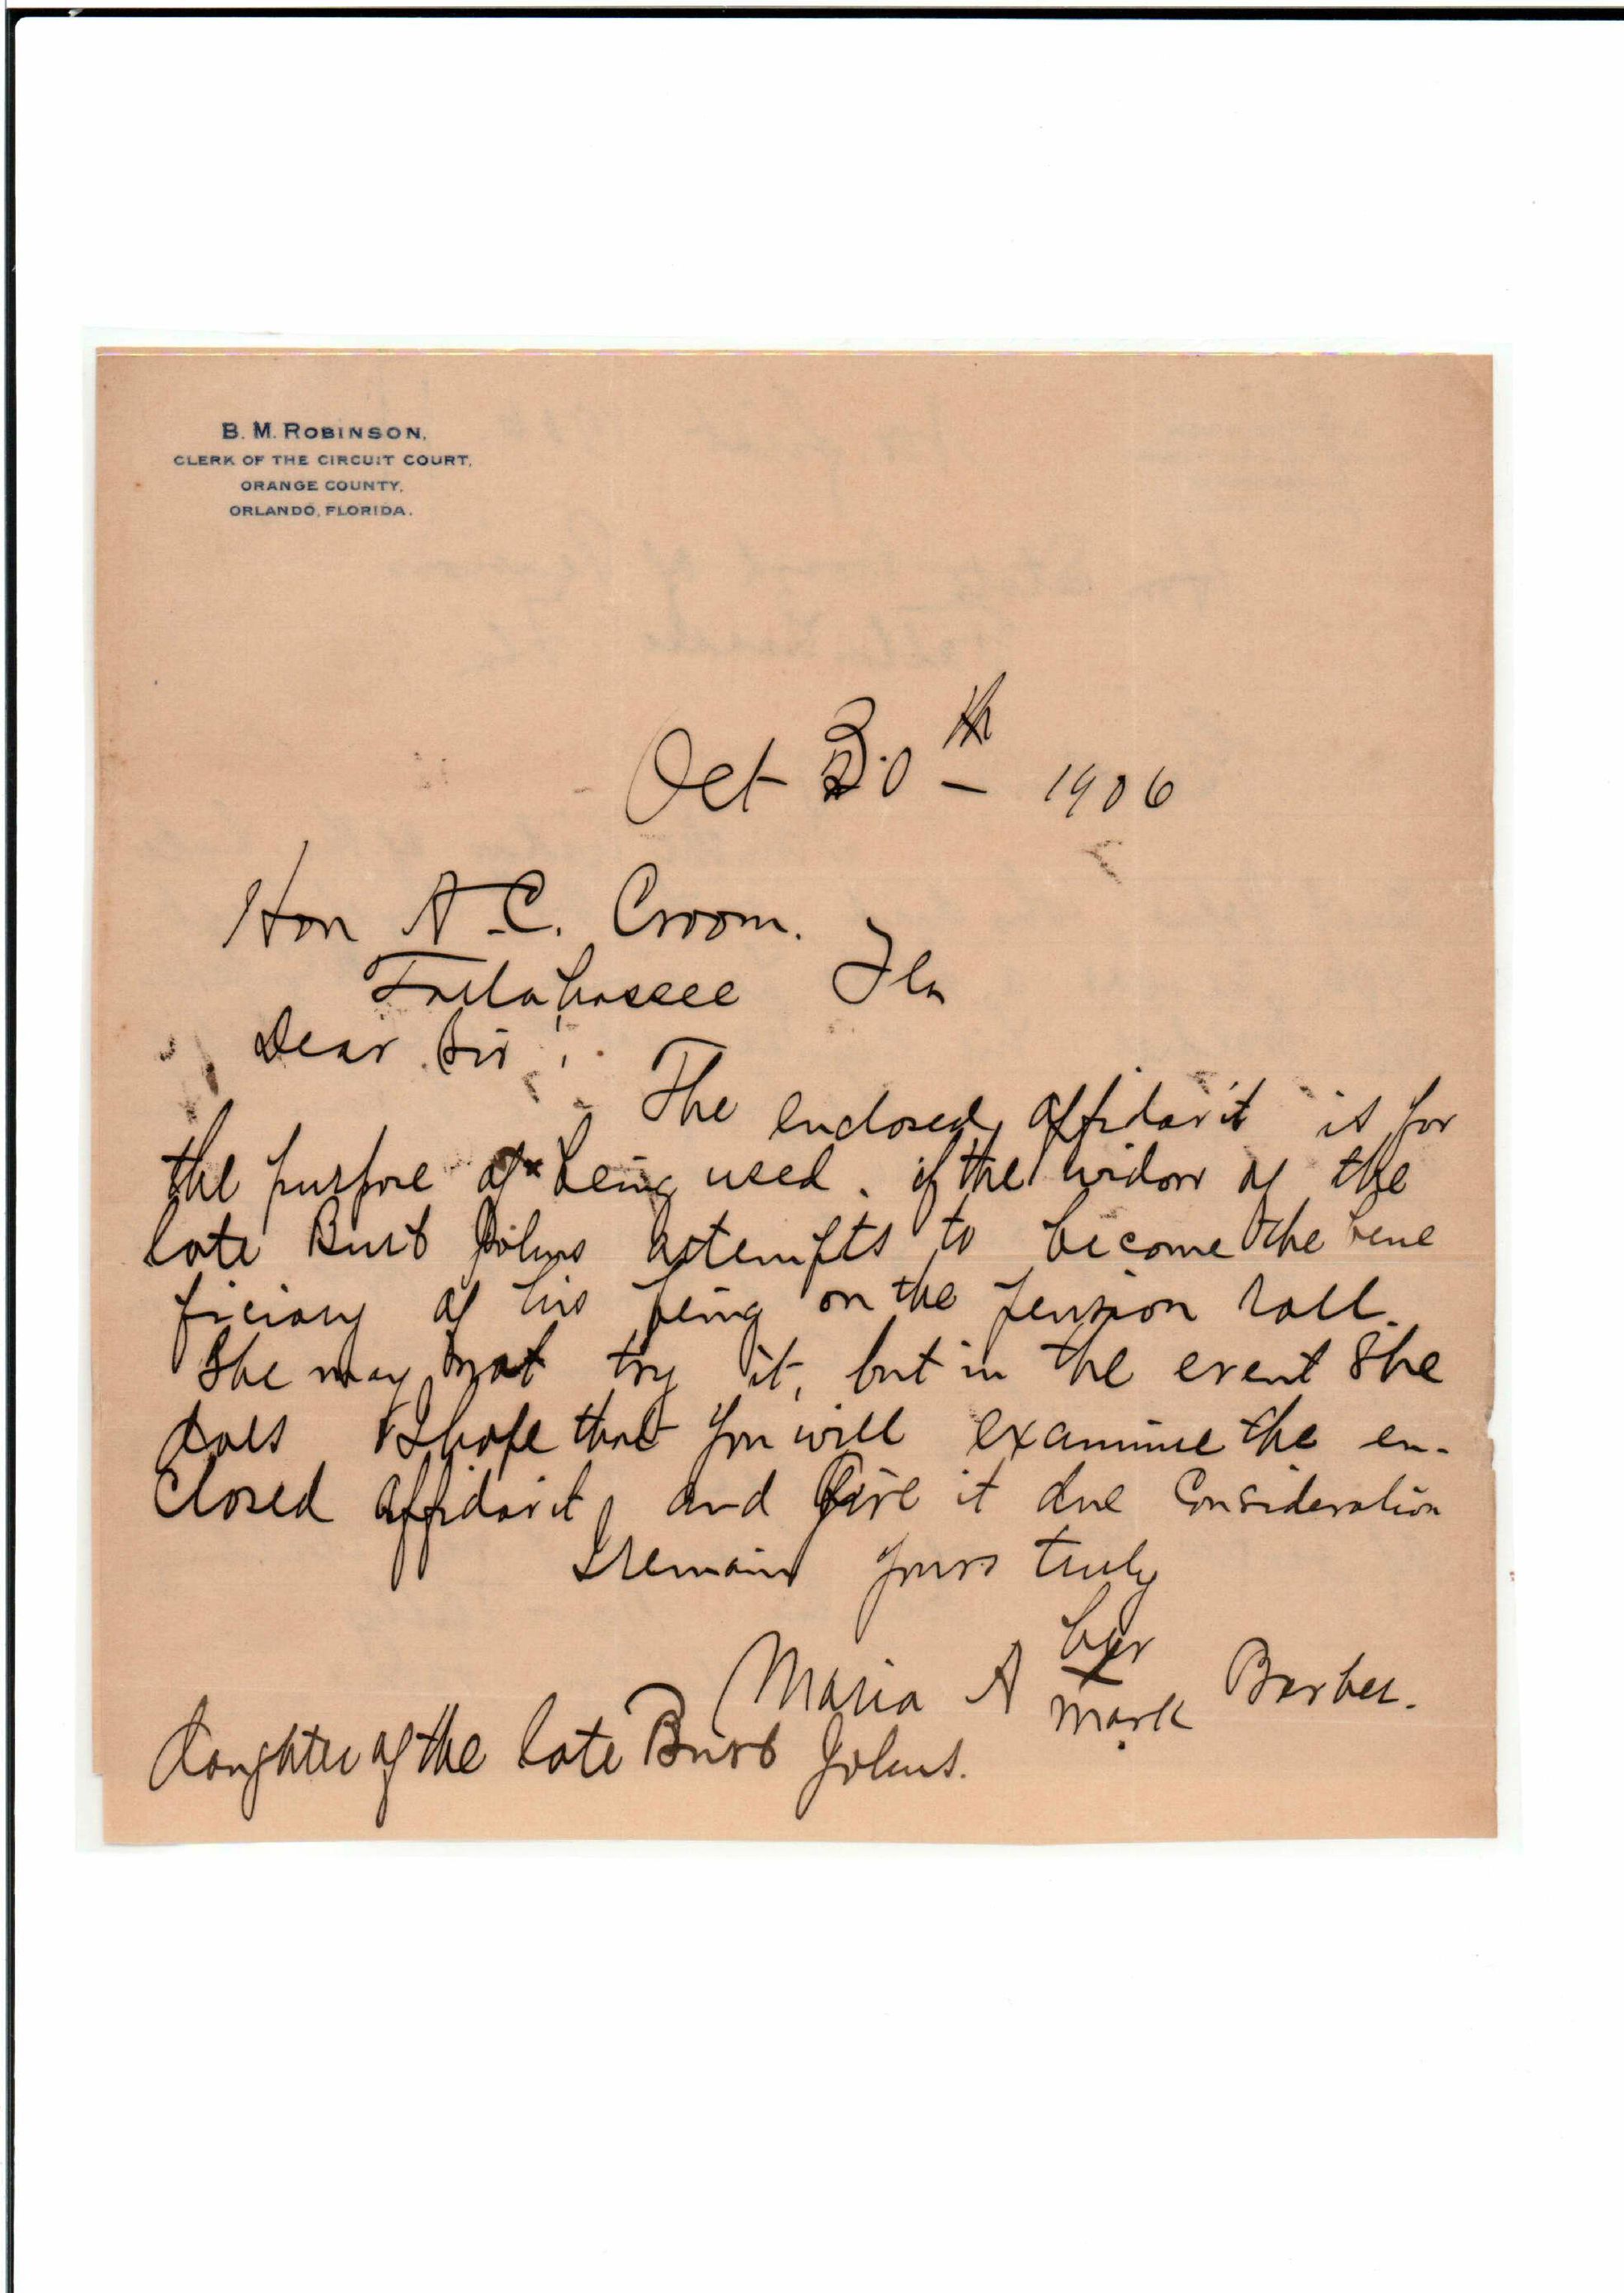 B. M. ROBINSON,
CLERK OF THE CIRCUIT COURT,
ORANGE COUNTY,
ORLANDO, FLORIDA.
Oct 30th — 1906
Hon A. C. Croom.
Tallahassee Fla
Dear Sir;
The enclosed affidavit is for
the purpose of being used. if the widow of the
late Burb Johns attempts to become the bene
ficiary of his being on the pension roll.
She may not try it, but in the event she
does I hope that you will examine the en-
closed affidavit, and Give it due Consideration
I remain yours truly
her
Maria A x Barber.
mark
daughter of the late Burb Johns.